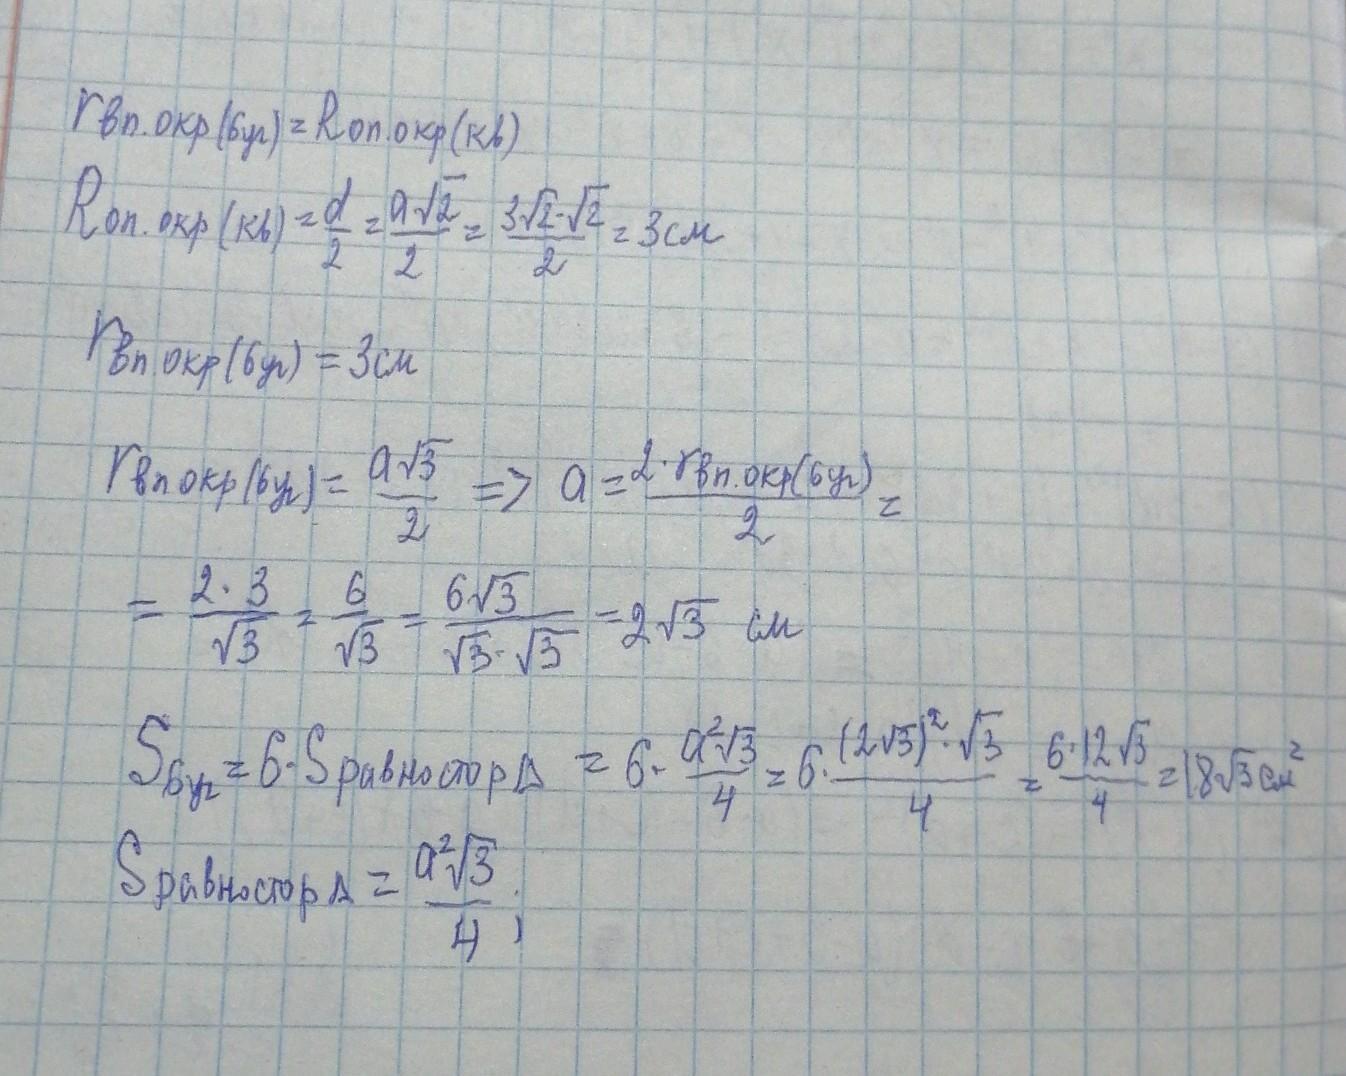 rвп.окр(6уг)=Rоп.окр(кв)
Rоп.окр(кв)=d/2=a√2/2=3√2·√2/2=3см
rвп.окр(6уг)=3см
rвп окр(6уг)=a√3/2 => a=2·rвп.окр(6уг)/2=
=2·3/√3=6/√3=6√3/√3·√3=2√3 см
S6уг=6·Sравностор∆=6·a²√3/4=6·(2√3)²·√3/4=6·12√3/4=18√3см²
Sравностор∆=a²√3/4;